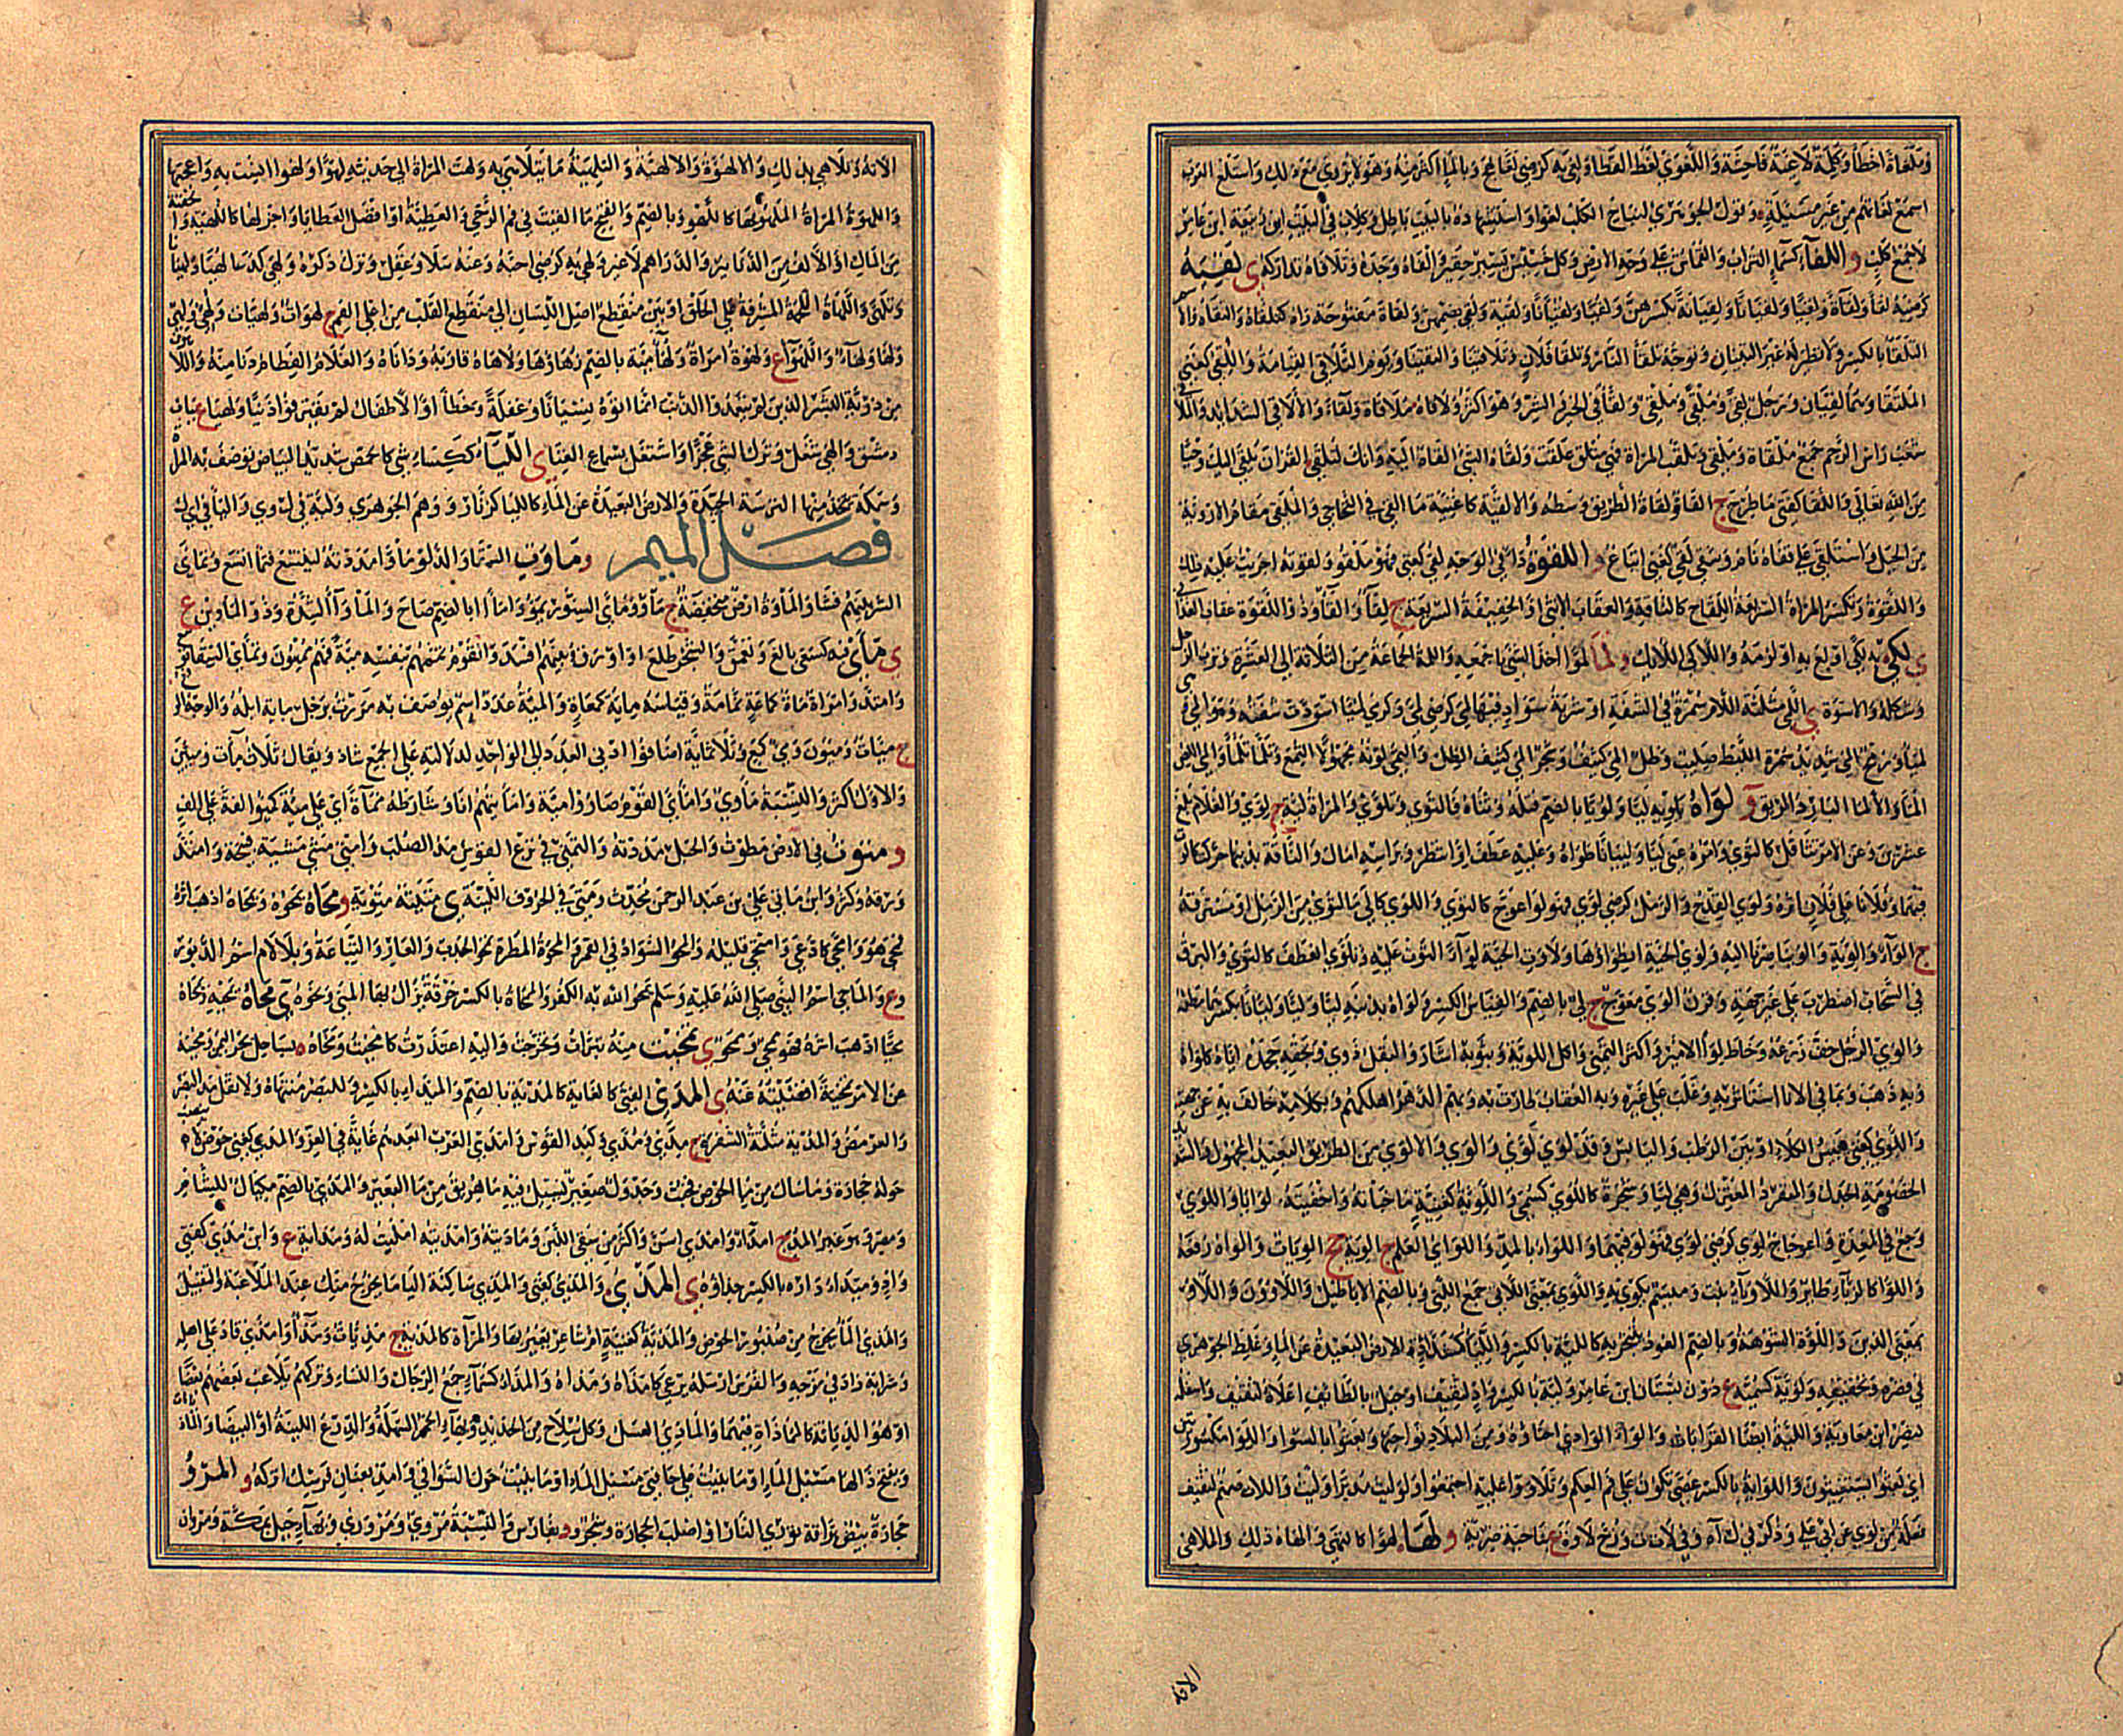 وملغاة اخطا وكلمة لاغية فاحشة واللغوي لغط القطا ولغي به كرضي لغا لهج وبالماء اكثر منه وهو لا يروي مع ذلك واستلغ العرب
اسمع لغاتهم من غير مسئلة وقول الجوهري لنباح الكلب لغو واستشهاده بالبيت باطل وكلاب في البيت ابن ربيعة ابن عامر
لا جمع كلب و اللفاء كسماء التراب والقماش على وجه الارض وكل خسيس يسير حقير والفاه وجده وتلافاه تداركه ي لقيه
كرضيه لقاء ولقاة ولقيا ولقيانا ولقيانة بكسرهن ولقيا ولقيانا ولقية ولقى بضمهن ولقاة مفتوحة راه كتلقاه والتقاه والاسم
التلقاء بالكسر ولا نظير له غير التبيان وتوجه تلقاء النار وتلقاء فلان وتلاقينا والتقينا ويوم التلاقي القيامة واللقي كغني
الملتقي وهما لقيان ورجل لقى وملقى وملقي ولقاء في الخير والشر وهو اكثر ولاقاه ملاقاة ولقاء والالاقي الشدايد والملاقي
شعب راس الرحم جمع ملقاة وملقى وتلقت المراة فهي متلق علقت ولقاه الشي القاه اليه وانك لتلقى القران يلقى اليك وحيا
من الله تعالى واللقا كفتى ما طرح ج القاء ولقاة الطريق وسطه والالقية كاغنية ما القي في التحاجي والملقى مقام الاروية
من الجبل واستلقى على قفاه نام وشقي لقي كغني اتباع و اللقوة داء في الوجه لقي كعني فهو ملقو ولقوته اجريت عليه ذلك
واللقوة وتكسر المراة السريعة اللقاح كالناقة والعقاب الانثى او الخفيفة السريعة ج لقاء والقاء وذو اللقوة عقاب الغداني
ي لكي به لكى اولع به او لزمه واللاكي اللايك و لما لموا اخذ الشي باجمعه واللمة الجماعة من الثلاثة الى العشرة وترب الرجل
وشكله والاسوة ي اللمى مثلثة اللام سمرة في الشفة او شربة سواد فيها لمي كرضي لمى وكرمى لميا اسودت شفته وهو المى
لمياء ورمح المى شديد سمرة الليط صليب وظل المى كثيف وشجر المى كثيف الظل والتمي لونه مجهولا التمع وتلما تلما والمى اللص
الماء والالما البارد الريق و لواه يلويه ليا ولويا بالضم فتله وثناه فالتوى وتلوى والمراة لية ج لوى والغلام بلغ
عشرين وعن الامر تثاقل كالتوى وامره عني ليا وليانا طواه وعليه عطف او انتظر وبراسه امال والناقة بذنبها حركت كالوت
فيهما وفلانا على فلان اثره ولوي القدح والرمل كرضي لوى فهو لو اعوج كالتوى واللوى كالى ما التوى من الرمل او مسترقه
ج الواء والوية والوينا صرنا اليه ولوى الحية انطواؤها ولاوت الحية لواء التوت عليه وتلوى انعطف كالتوى والبرق
في السحاب اضطرب على غير جهة وقرن الوى معوج ج لي بالضم والقياس الكسر ولواه بدينه ليا وليا وليانا بكسرهما مطله
والوى الرجل جف زرعه وخاط لواء الامير واكثر التمني واكل اللوية وبثوبه اشار والبقل ذوى وبحقه جحده اياه كلواه
وبه ذهب وبما في الاناء استاثر به وغلب على غيره وبه العقاب طارت به وبهم الدهر اهلكهم وبكلامه خالف به عن جهته
واللوي كغني يبيس الكلاء او بين الرطب واليابس وقد لوي لوى والوى والالوى من الطريق البعيد المجهول والشديد
الخصومة الجدل والمنفرد المعتزل وهي ليا وشجرة كاللوى كسمي واللوية كغنية ما خباته واخفيته لوايا واللوى
وجع في المعدة واعوجاج لوى كرضي لوى فهو لو فيهما واللواء بالمد واللواي العلم ج الوية جج الويات والواه رفعه
واللواء كالرباء طاير واللاوياء نبت وميسم يكوى به واللوى بمعنى اللاتي جمع التي وبالضم الاباطيل واللاوون واللاو
بمعنى الذين واللوة الشوهة وبالضم العود يتبخر به كاللية بالكسر واللياء كشداد الارض البعيدة عن الماء وغلط الجوهري
في قصره وتخفيفه ولوية كسمية ع دون بستان ابن عامر ولية بالكسر واد لثقيف او جبل بالطايف اعلاه لثقيف واسفله
لنصر ابن معاوية واللية ايضا القرابات والواء الوادي احناؤه ومن البلاد نواحيها وبعثوا بالسواء واللواء مكسورتين
اي بعثوا يستغيثون واللواية بالكسر عصى تكون على فم العكم وتلاووا عليه اجتمعوا ولوليت مدبرا وليت واللات صنم لثقيف
فعلة من لوى عن ابي علي وذكر في ل ت وفي ل ا ه ونخ لاوة ع ناحية ضرية و لها لهوا كالتهى والهاه ذلك والملاهي
الالا
الاته وتلاهي بذلك والالهوة والالهية والتلهية ما يتلاهى به ولهت المراة الى حديثه لهوا ولهوا انست به واعجبها
واللهوة المراة الملهو بها كاللهو وبالضم والفتح ما القيت في فم الرحى والعطية او افضل العطايا واجزلها كاللهية والحفنة
من المال او الالف من الدنانير والدراهم لا غير ولهي به كرضي احبه وعنه سلا وغفل وترك ذكره ولهي كدعا لهيا ولهيانا
وتلهى واللهاة اللحمة المشرفة على الحلق او بين منقطع اصل اللسان الى منقطع القلب من اعلى الفم ج لهوات ولهيات ولهي ولهي
ولها ولهاء واللهواء ع ولهوة امراة ولهاء مية بالضم زهاؤها ولاهاه قاربه وداناه والغلام الفطام دنا منه واللاهون
من ذرية البشر الذين لم يتعمدوا الذنب انما اتوه نسيانا وغفلة وخطا او الاطفال لم يقترفوا ذنبا ولهيا ع بباب
دمشق والهى شغل وترك الشي عجزا واشتغل بسماع الغنا ي اللياء ككساء شي كالحمص شديد البياض توصف به المراة
وسمكة تتخذ منها الترسة الجيدة والارض البعيدة عن الماء كالليا كزنار ووهم الجوهري ولية في ل وي واليا في ا ي ل
فصل الميم و ماوت السقا والدلو ماوا مددته ليتسع فتمائ اتسع وتماى
الشر بينهم فشا والماوة ارض منخفضة ج ماو وماى السنور يموء ومواء ابا لضم صاح والماواء الشدة وذو الماوين ع
ي ماى فيه كسعى بالغ وتعمق والشجر طلع او اورق وبينهم افسد والقوم تممهم بنفسه مية فهم ممؤون وتماى السقاء توسع
وامتد وامراة ماة كماعة نمامة وقياسه مآة كمعاة والمية عدد اسم يوصف به مررت برجل ماية ابله والوجه الرفع
ج ميات ومئون ومى كمع وثلاثماية اضافوا ادنى العدد الى الواحد لدلالته على الجمع شاذ ويقال ثلاث مات ومئين
والاول اكثر والنسبة ماوي وامأى القوم صاروا مية واماتهم انا وشارطه مماة اي على مية كمؤالفة على الف
و متوت في الارض مطوت والحبل مددته والتمتي في نزع القوس مد الصلب وامتى مشى مشية قبيحة وامتد
ورزقه وكثر وابن ماتى علي بن عبد الرحمن محدث ومتى في الحروف اللينة ي متيته متوته و محاه يمحوه ويمحاه اذهب اثره
فمحى هو وامحى كادعى وامتحى قليلة والمحو السواد في القمر والمحوة المطرة تمحو الجدب والعار والساعة وبلا لام اسم الدبور
وع والماحي اسم النبي صلى الله عليه وسلم يمحو الله به الكفر والممحاة بالكسر خرقة يزال بها المني ونحوه ي محاه يمحيه ويمحاه
محيا اذهب اثره فهو ممحي وممحو ي تمخيت منه تبرات وتحرجت واليه اعتذرت كامخيت ومخاه ه بساحل بحر اليمن ومخيته
عن الامر تمخية اقصيته عنه ي المدى كالفتى الغاية كالمدية بالضم والميداء بالكسر وللبصر منتهاه ولا يقل مد البصر
والعرمض والمدية مثلثة الشفرة ج مدى ومدى وكبد القوس وامدى العرب ابعدهم غاية في العز والمدي كغني حوض لا نصايب
حوله حجارة وما سال من ماء الحوض فخبث وجدول صغير يسيل فيه ما هريق من ماء البير والمدي بالضم مكيال للشام
ومصر وهو غير المد ج امداء وامدى اسن واكثر من سقي اللبن وماديته وامديته امليت له ومداية ع وابن مدى كفتى
واد وميداء داره بالكسر حذاؤه ي المذي والمذي كغني والمذي ساكنة اليا ما يخرج منك عند الملاعبة والتقبيل
والمذي الماء يخرج من صنبور الحوض والمذية كغنية ام شاعر يعير بها والمراة كالمذية ج مذيات ومذاء وامذى قاد على اهله
وشرابه زاد في مزجه والفرس ارسله يرعى كامذاه ومذاه والمذاء كسماء جمع الرجال والنساء وتركهم يلاعب بعضهم بعضا
او هو الدياثة كالمماذاة فيهما والماذي العسل وكل سلاح من الحديد وبهاء الخمر السهلة والدرع اللينة او البيضاء والماذيان
وبفتح ذالها مسيل الماء او ما ينبت على حافتي مسيل الماء او ما ينبت حول السواقي وامذ بعنان فرسك اتركه و المرو
حجارة بيض براقة توري النار او اصلب الحجارة وشجر ود بفارس والنسبة مروي ومروزي وبهاء جبل بمكة ومروان